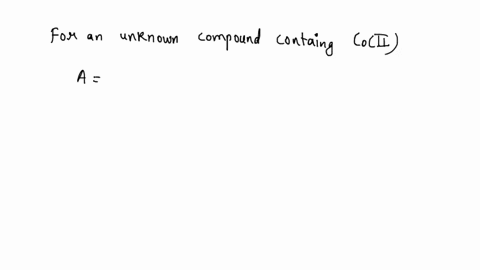 For an unknown compound containg Co(II)
A =